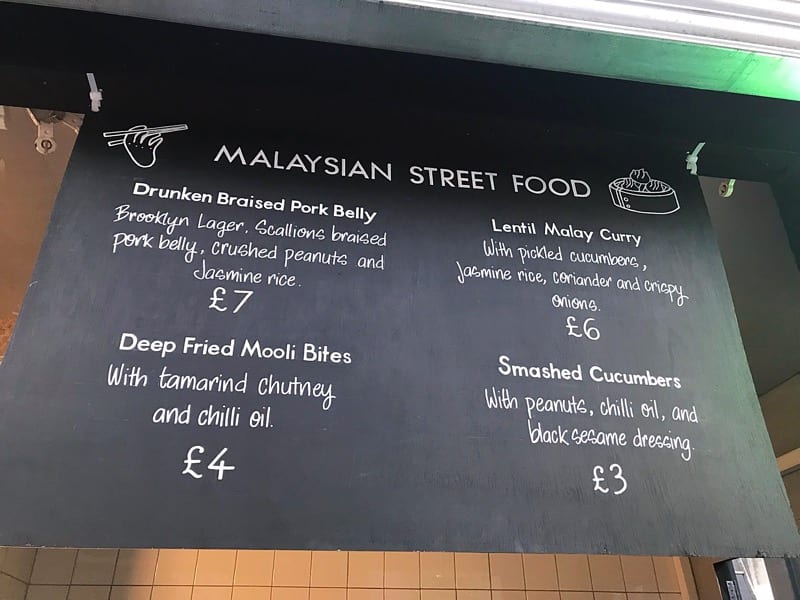 MALAYSIAN STREET FOOD
Drunken Braised Pork Belly
Brooklyn Lager. Scallions braised
pork belly, crushed peanuts and
Jasmine rice.
£7
Deep Fried Mooli Bites
With tamarind chutney
and chilli oil.
£4
Lentil Malay Curry
With pickled cucumbers,
Jasmine rice, coriander and crispy
onions.
£6
Smashed Cucumbers
With peanuts, chilli oil, and
black sesame dressing.
£3